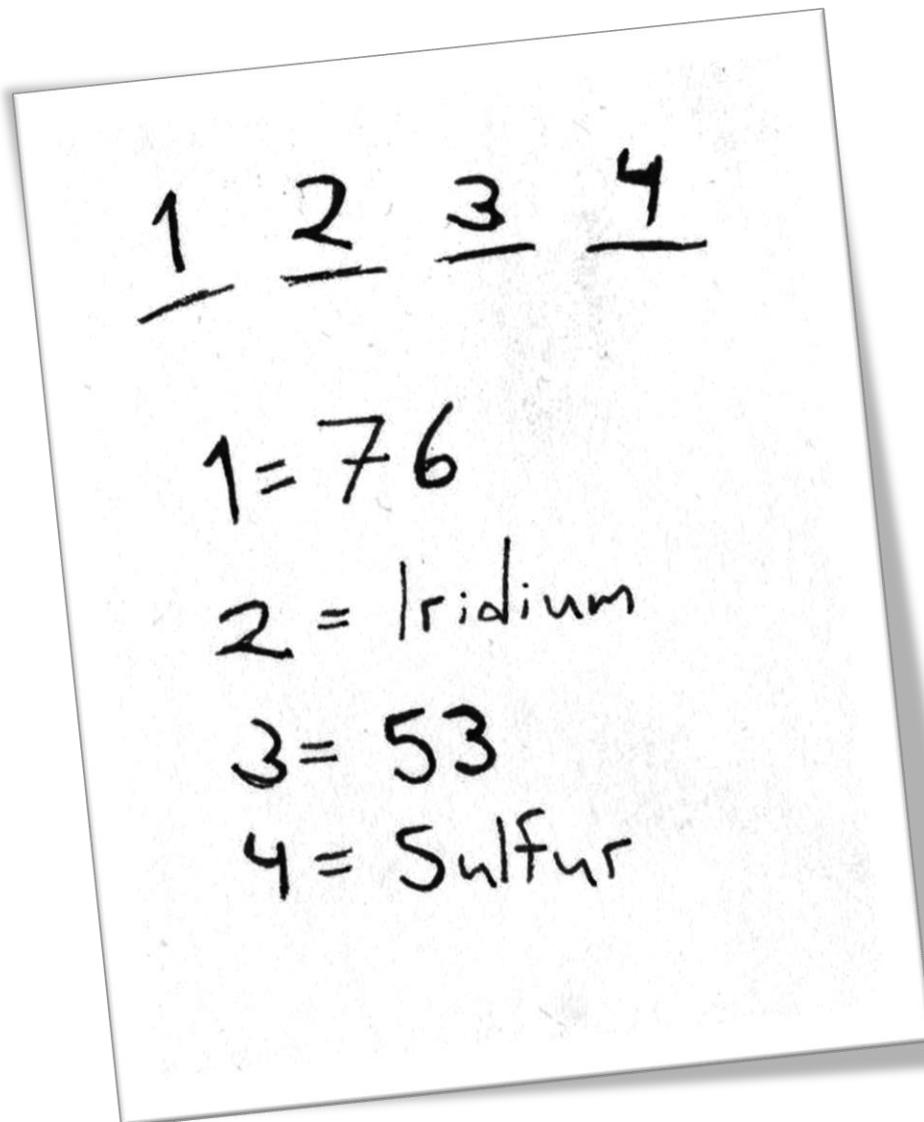 1 2 3 4
1 = 76
2 = Iridium
3 = 53
4 = Sulfur